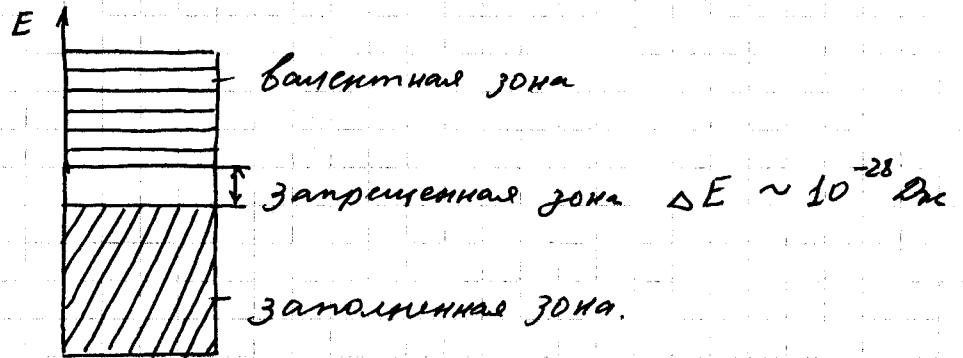 E
валентная зона
запрещенная зона ΔE ~ 10⁻²⁸ Дж
заполненная зона.